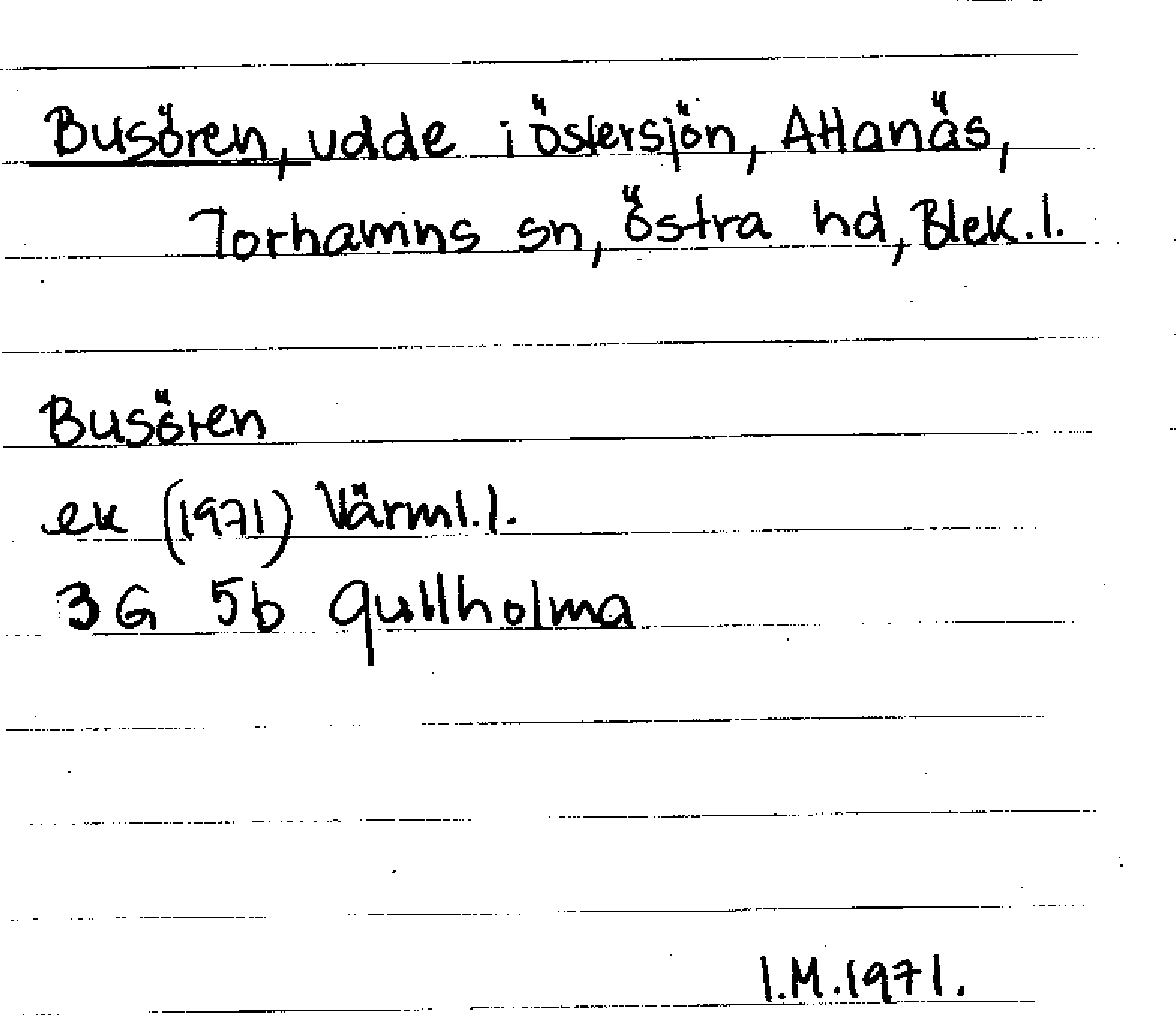 Busören, udde i östersjön, Attanäs,
Torhamns sn, östra hd, Blek. l.
Busören
ek (1971) Värml. l.
3G 5b gullholma
I.M. 1971.